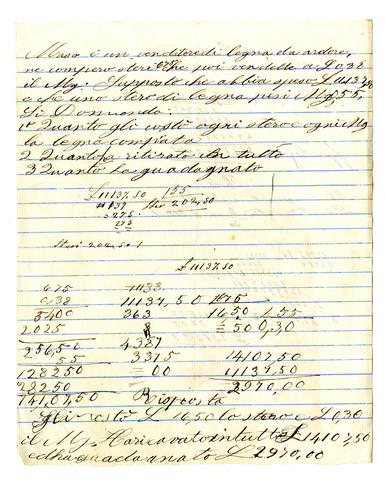 Maso è un venditore di legna da ardere,
ne comperò steri 675 che poi vendette a £ 0,38
il Mg. Supposto che abbia speso £ 11137,50
e che uno stero di legna pesi Mg. 55,
Si Domanda:
1° Quanto gli costò ogni stero e ogni Mg
la legna comprata
2 Quanto à ritirato in tutto
3 Quanto ha guadagnato
£ 11137.50 155
275 Steri 202,50
275
Steri 202,50 1
£ 11137,50
675 1133
0,38 11137,50 675
5400 363 16,50 1,55
2025 500,30
256,50 4387
55 3375 14107,50
128250 00 11137,50
128250 2970,00
14107,50 Risposta
Gli costò £ 16,50 lo stero e £ 0,30
il Mg. Ha ricavato in tutto £ 14107,50
ed ha guadagnato £ 2970,00